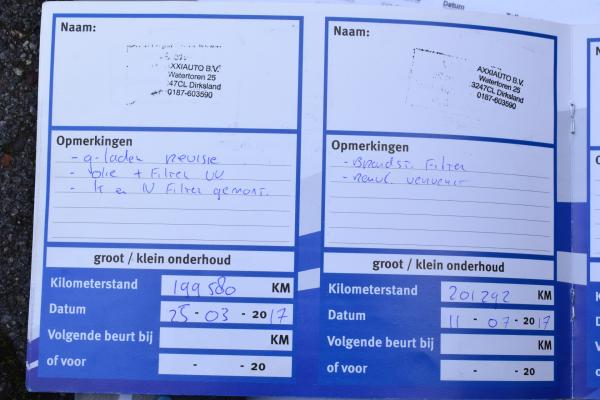 Datum
Naam:
AXXIAUTO B.V.
Watertoren 25
3247CL Dirksland
0187-603590
Opmerkingen
- g-laden revisie
- olie + Filter VV
- k en N Filter gemont.
groot / klein onderhoud
Kilometerstand 199580 KM
Datum 25 - 03 - 2017
Volgende beurt bij KM
of voor - - 20
Naam:
AXXIAUTO B.V.
Watertoren 25
3247CL Dirksland
0187-603590
Opmerkingen
- Brandst. Filter
- remvl. ververst
groot / klein onderhoud
Kilometerstand 201292 KM
Datum 11 - 07 - 2017
Volgende beurt bij KM
of voor - - 20